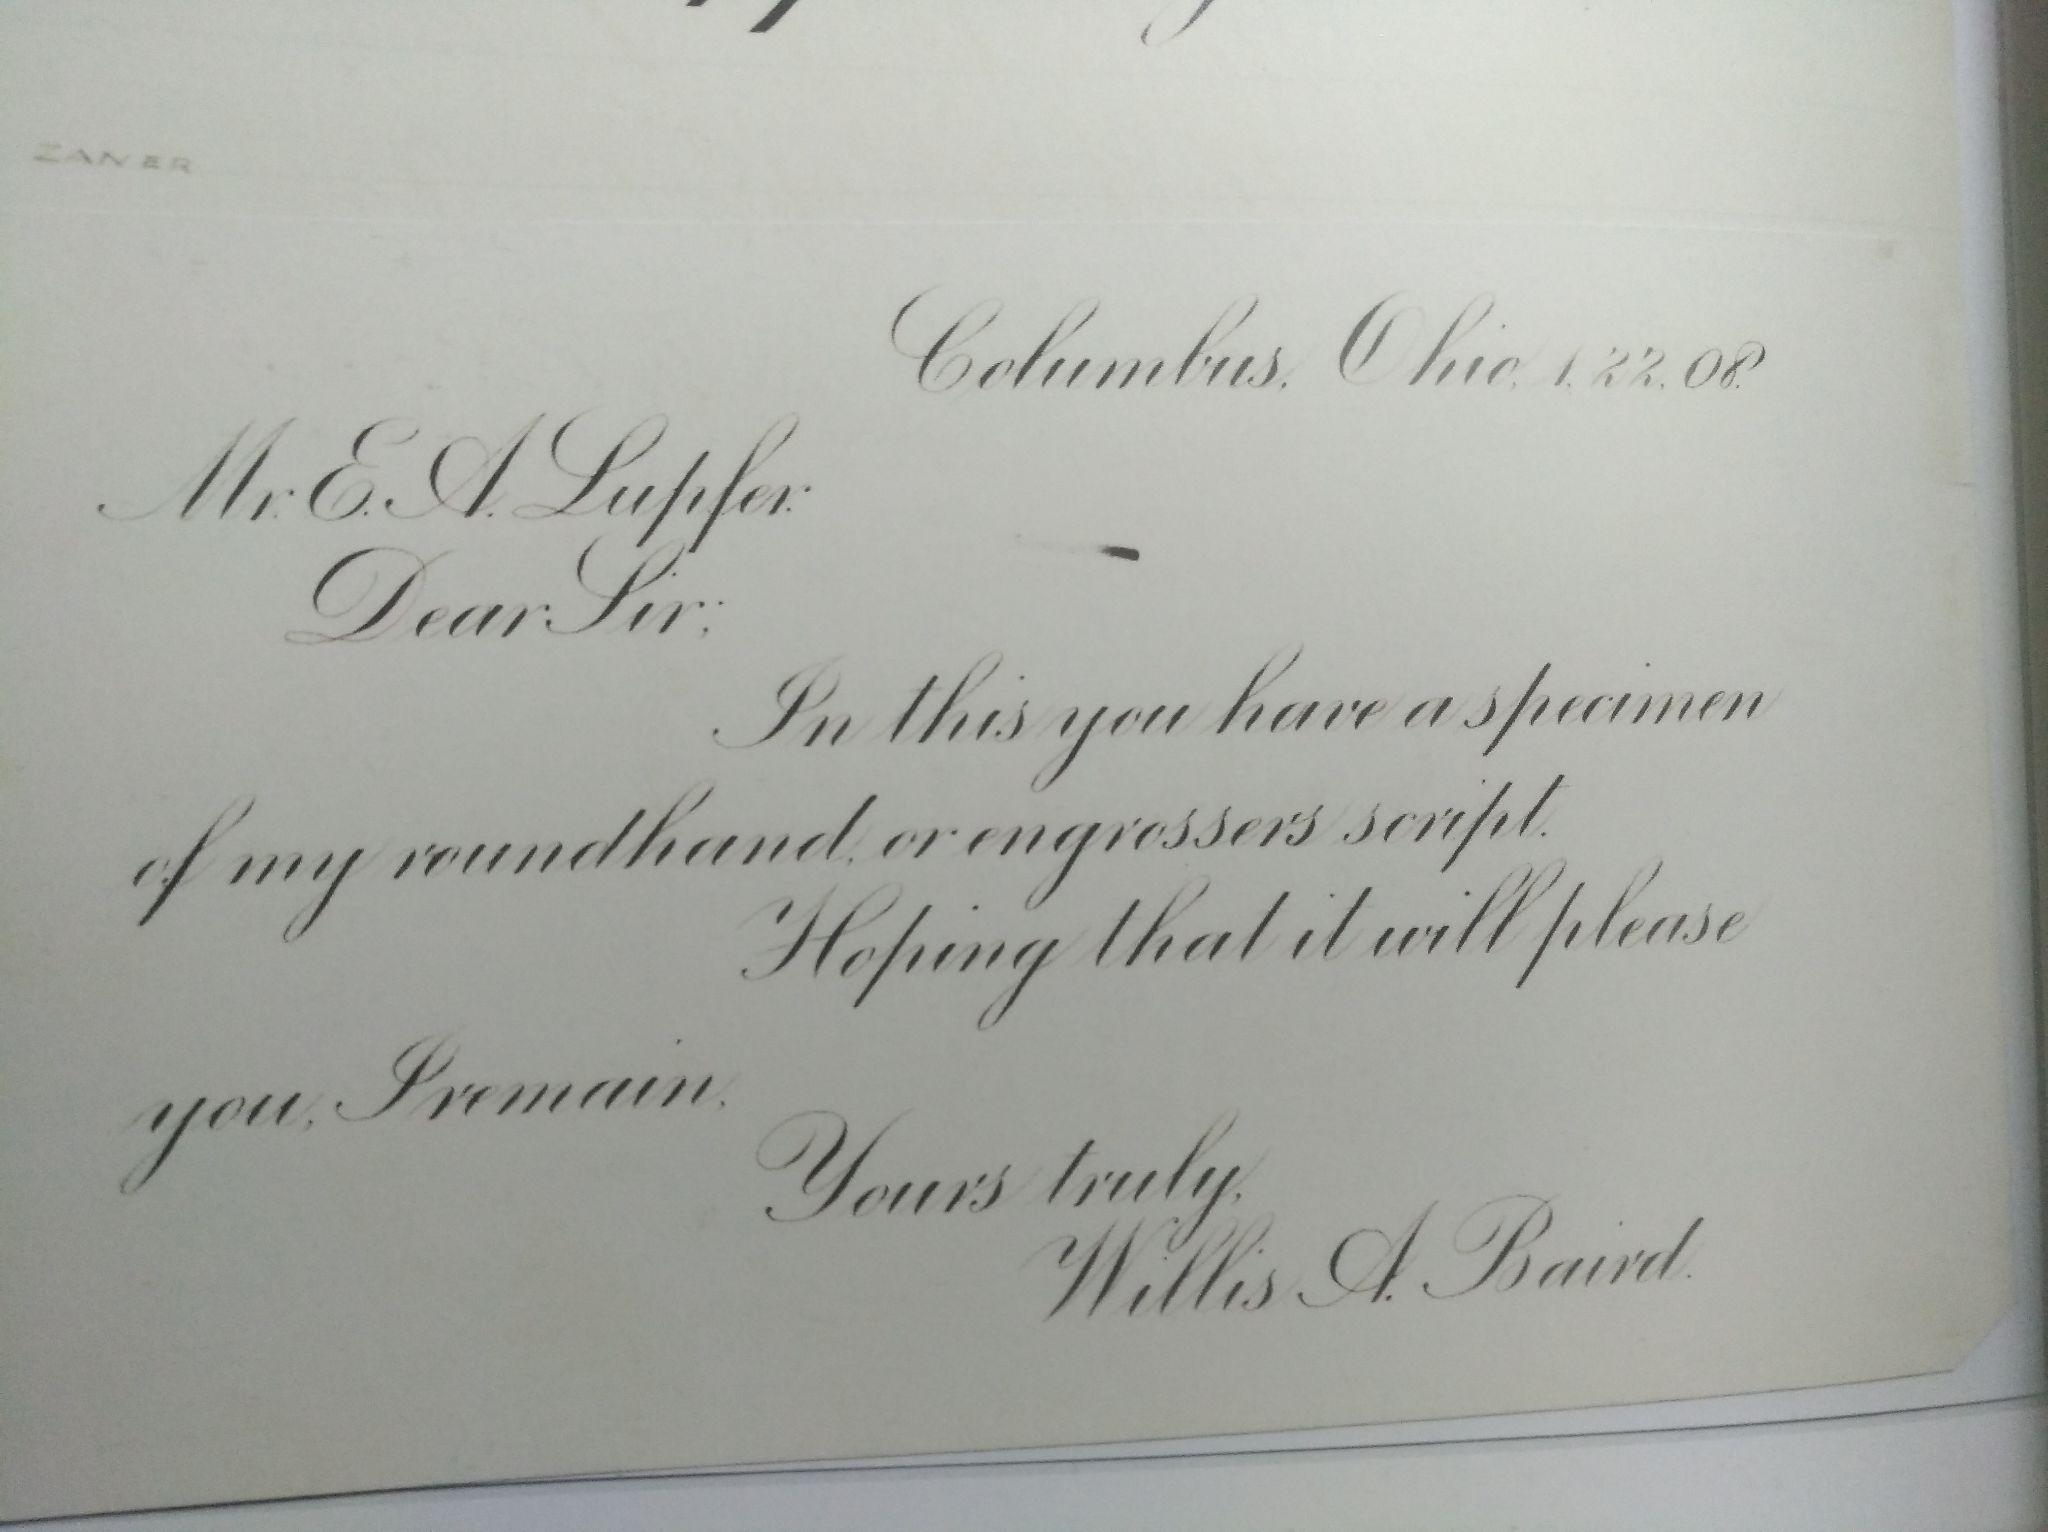 ZANER
Columbus, Ohio, 1.22.08.
Mr. E. A. Lupfer.
Dear Sir;
In this you have a specimen
of my roundhand, or engrossers script.
Hoping that it will please
you, I remain,
Yours truly,
Willis A. Baird.